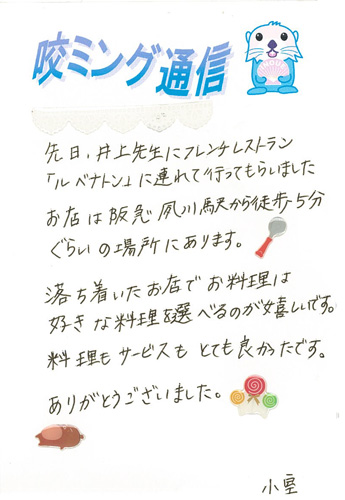 咬ミング通信
先日、井上先生にフレンチレストラン
「ル ベナトン」に連れて行ってもらいました
お店は阪急 夙川駅から徒歩5分
ぐらいの場所にあります。
落ち着いたお店でお料理は
好きな料理を選べるのが嬉しいです。
料理もサービスもとても良かったです。
ありがとうございました。
小室